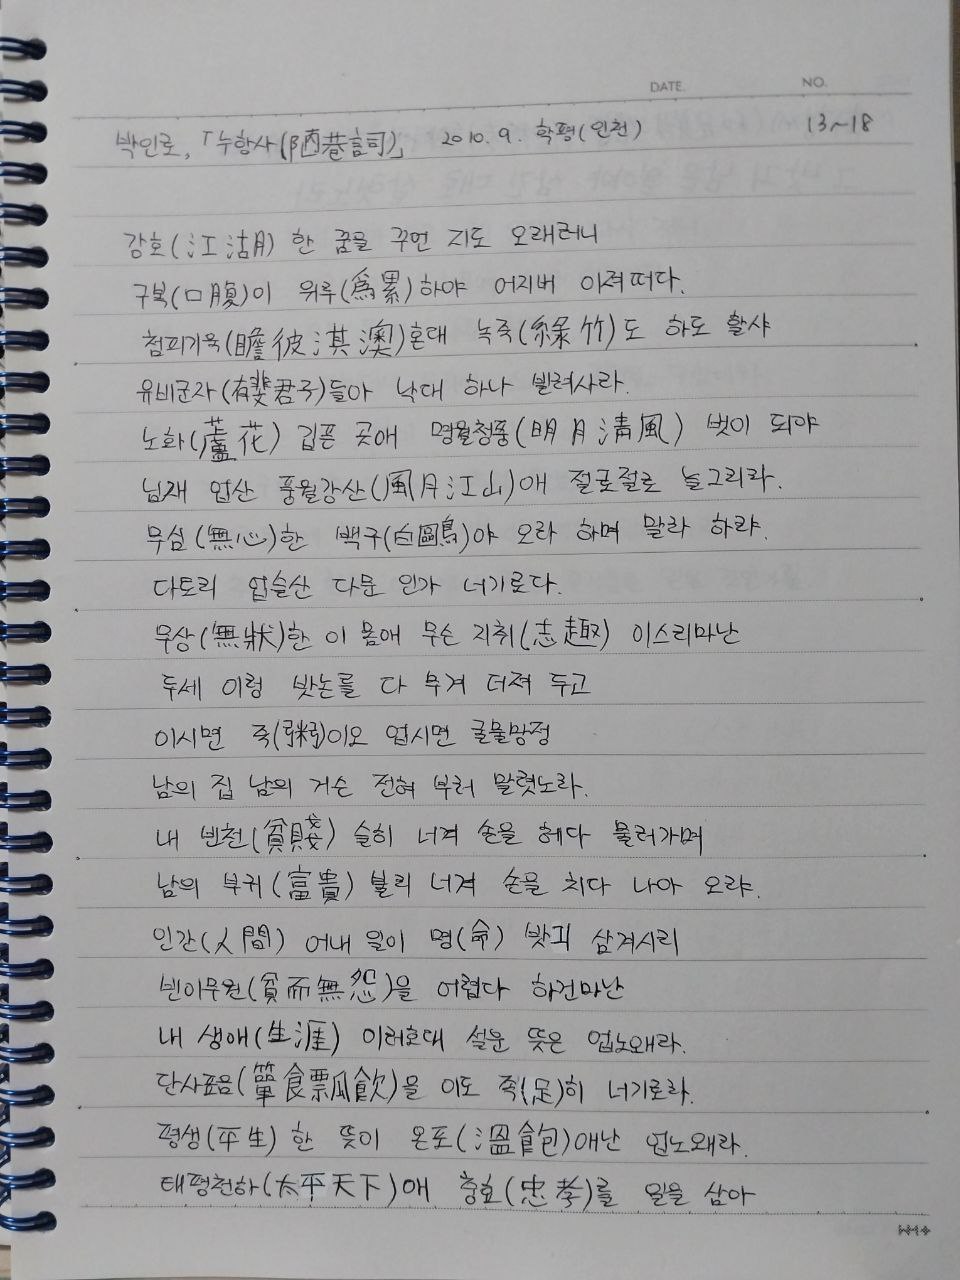 DATE. NO.
박인로, 「누항사(陋巷詞)」 2010. 9. 학평(인천) 13~18
강호(江湖) 한 꿈을 꾸언 지도 오래러니
구복(口腹)이 위루(爲累)하야 어지버 이져떠다.
첨피기욱(瞻彼淇澳)혼대 녹죽(綠竹)도 하도 할샤
유비군자(有斐君子)들아 낙대 하나 빌려사라.
노화(蘆花) 깁픈 곳애 명월청풍(明月淸風) 벗이 되야
님재 업산 풍월강산(風月江山)애 절로절로 늘그리라.
무심(無心)한 백구(白鷗)야 오라 하며 말라 하랴.
다토리 업슬산 다문 인가 너기로다.
무상(無狀)한 이 몸애 무슨 지취(志趣) 이스리마난
두세 이렁 밧논를 다 무겨 더져 두고
이시면 죽(粥)이오 업시면 굴물망정
남의 집 남의 거슨 전혀 부러 말렷노라.
내 빈천(貧賤) 슬히 너겨 손을 헤다 물러가며
남의 부귀(富貴) 불리 너겨 손을 치다 나아 오랴.
인간(人間) 어내 일이 명(命) 밧긔 삼겨시리
빈이무원(貧而無怨)을 어렵다 하건마난
내 생애(生涯) 이러호대 설운 뜻은 업노왜라.
단사표음(簞食瓢飮)을 이도 족(足)히 너기로라.
평생(平生) 한 뜻이 온포(溫飽)애난 업노왜라.
태평천하(太平天下)애 충효(忠孝)를 일을 삼아